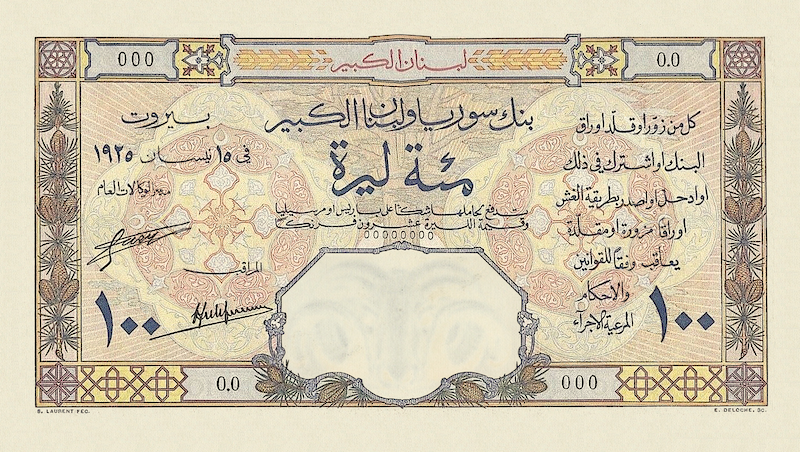 لبنان الكبير
000
0.0
بنك سوريا ولبنان الكبير
مئة ليرة
تدفع لحاملها شكًّا على باريس او مرسيليا
وقيمة الليرة عشرون فرنك
00000000
بيروت
في ١٥ نيسان ١٩٢٥
مدير الوكالات العام
المراقب
كل من زوّر او قلّد اوراق
البنك او اشترك في ذلك
او ادخل او اصدر بطريقة الغش
اوراقًا مزورة او مقلّدة
يعاقب وفقًا للقوانين
والاحكام
المرعية الاجراء
١٠٠
١٠٠
0.0
000
S. LAURENT FEC.
E. DELOCHE, SC.